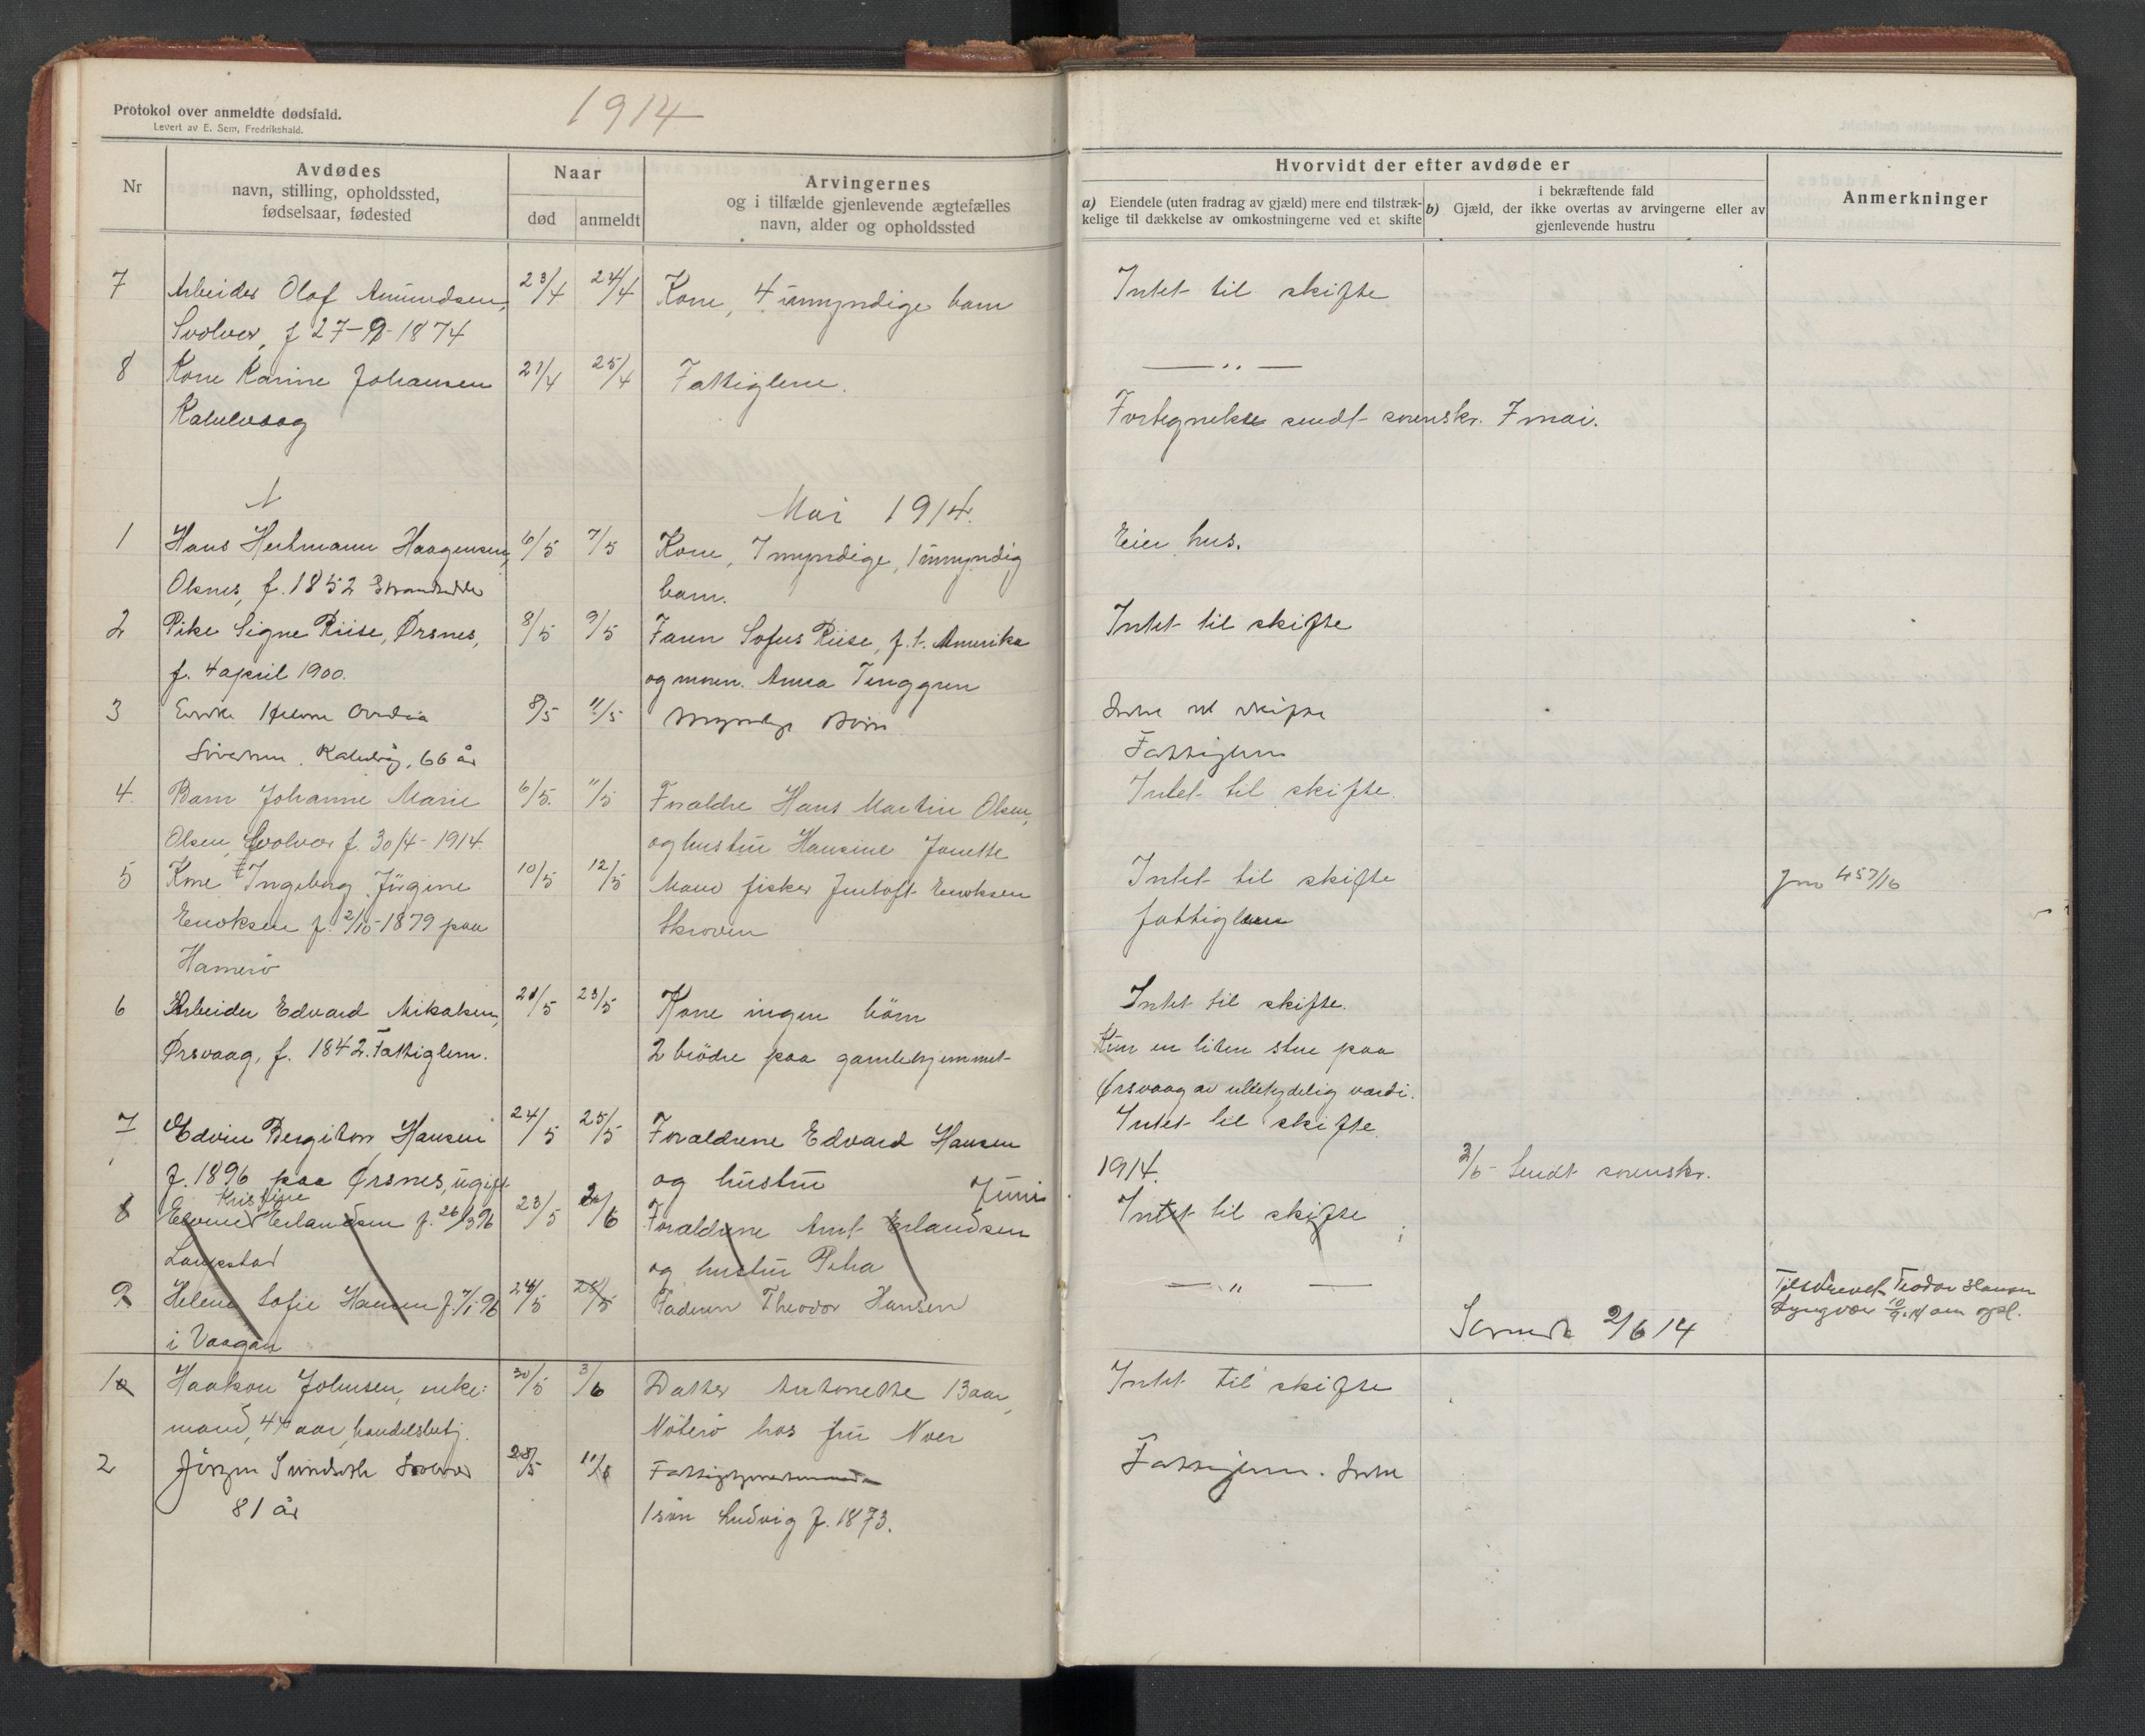 Protokol over anmeldte dødsfald.
Levert av E. Sem, Fredrikshald.
1914
Nr
Avdødes
navn, stilling, opholdssted,
fødselsaar, fødested
Naar
død
anmeldt
Arvingernes
og i tilfælde gjenlevende ægtefælles
navn, alder og opholdssted
Hvorvidt der efter avdøde er
a) Eiendele (uten fradrag av gjæld) mere end tilstræk-
kelige til dækkelse av omkostningerne ved et skifte
i bekræftende fald
b) Gjæld, der ikke overtas av arvingerne eller av
gjenlevende hustru
Anmerkninger
7 Arbeider Olaf Amundsen, 23/4 24/4 Kone, 4 umyndige barn Intet til skifte
Svolvær, f 27-9-1874
8 Kone Karine Johansen 21/4 25/4 Fattiglem. — „ —
Kabelvaag Fortegnelse sendt sorenskr. 7 mai.
Mai 1914.
1 Hans Hertmann Haagensen, 6/5 7/5 Kone, 7 myndige, 1 umyndig Eier hus.
Olsnes, f. 1852 Strandsidder barn.
2 Pike Signe Riise, Ørsnes, 8/5 9/5 Faren Sofus Riise, f.t. Amerika Intet til skifte
f. 4 april 1900. og moren. Anna Tenggren
3 Enke Helene 8/5 11/5 Myndige Børn Intet til skifte
Sivertsen, Kabelvåg, 66 år Fattiglem
4. Barn Johanne Marie 6/5. 11/5 Forældre Hans Martin Olsen, Intet til skifte.
Olsen, Svolvær f. 30/4-1914. og hustru Hansine Janette
5 Kone Ingeborg Jørgine 10/5 12/5 Mand fisker Enoksen Intet til skifte Jno 457/16
Enoksen f. 2/10-1879 paa Skroven fattiglem
Hamerø
6 Arbeider Edvard Mikalsen, 21/5 23/5 Kone ingen børn Intet til skifte.
Ørsvaag, f. 1842. Fattiglem. 2 brødre paa gamlehjemmet Kun en liten stue paa
Ørsvaag av ubetydelig værdi.
7 Edvin Bergiton Hansen 24/5 25/5 Forældrene Edvard Hansen Intet til skifte
f. 1896 paa Ørsnes, ugift og hustru Juni 1914. 2/6 Sendt sorenskr.
Kristine
8 Erlandsen f. 26/3 96 23/5 2/6 Forældrene Arnt Erlandsen Intet til skifte
Laupstad og hustru Petra
9 Helene Sofie Hansen f. 7/1 96 24/5 28/5 Faderen Theodor Hansen — „ — Tilskrevet Teodor Hansen
Lyngvær 10/9.14 om opl.
i Vaagan 2/6 14
1 Haakon Johnsen, enke- 30/5 3/6 Datter Antonette 13 aar, Intet til skifte
mand, 44 aar, handelsbetj. Nøterø hos fru Noer
2 Jørgen Svolvær 28/5 11/6 Fattiglem. Intet
81 år 1 søn Ludvig f. 1873.